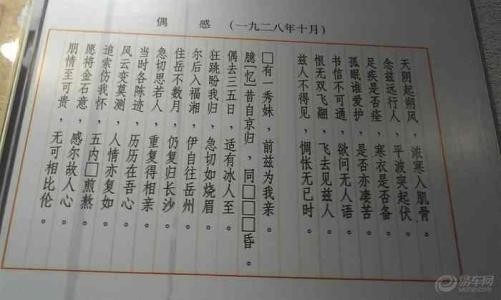 偶 感 (一九二八年十月)
天阴起朔风，浓寒入肌骨。
念兹远行人，平波突起伏。
足疾是否痊，寒衣是否备。
孤眠谁爱护，是否亦凄苦。
书信不可通，欲问无人语。
恨无双飞翮，飞去见兹人。
兹人不得见，惆怅无已时。
□有一秀妹，前兹为我亲。
臆[忆]昔自京归，同□□□昏。
偶去三五日，适有冰人至。
狂跳盼我归，急切如烧眉。
尔后入福湘，伊自往岳州。
住岳不数月，仍复归长沙。
急切思若人，重复得相亲。
当时各陈迹，历历在吾心。
风云变莫测，人情亦复如。
追索伤我怀，五内□煎熬。
郎将金石意，感尔故人心。
朋情至可贵，无可相比伦。
易车网